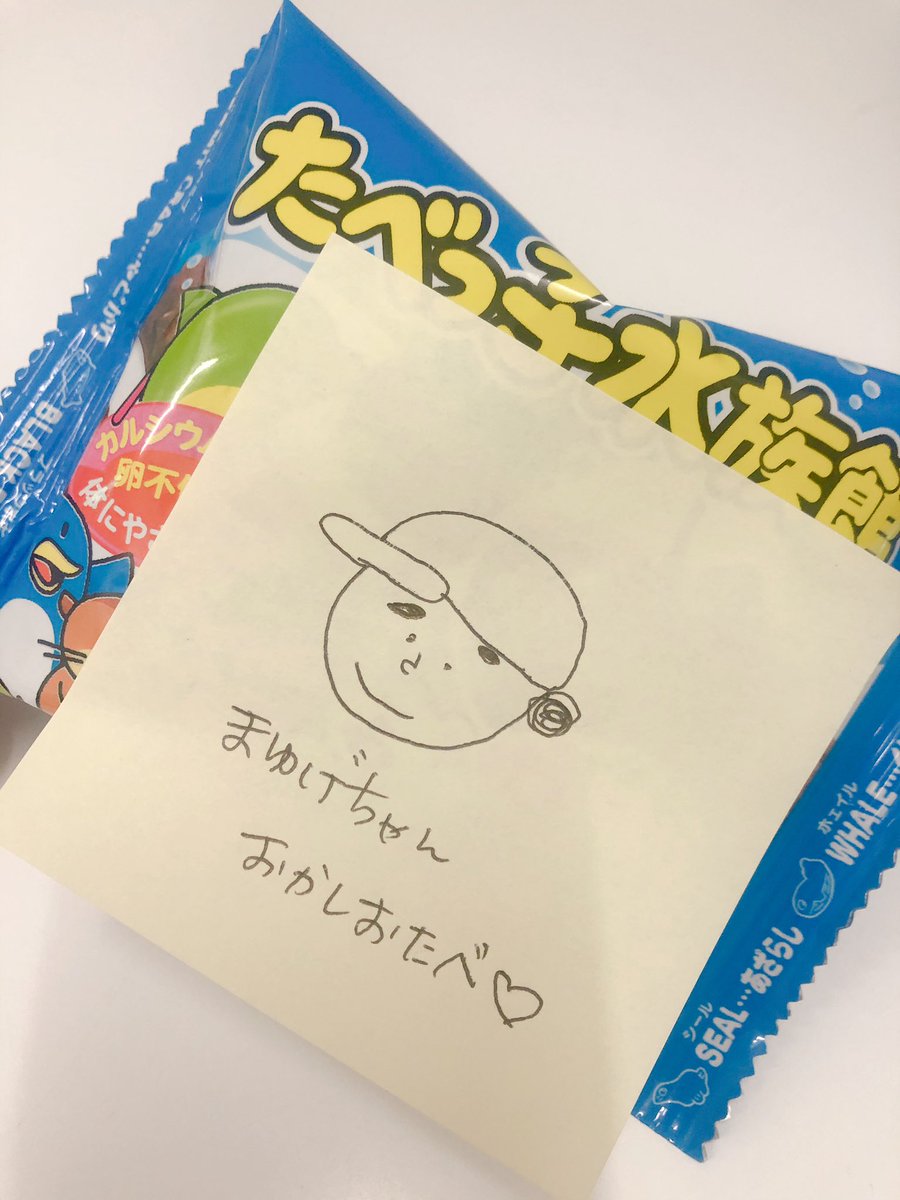 たべっ子水族館
カルシウム
卵不
体にやさ
HERMIT CRAB…やどかり
BLACK
まゆげちゃん
おかしおたべ♡
ホエイル
WHALE…
シール
SEAL…あざらし